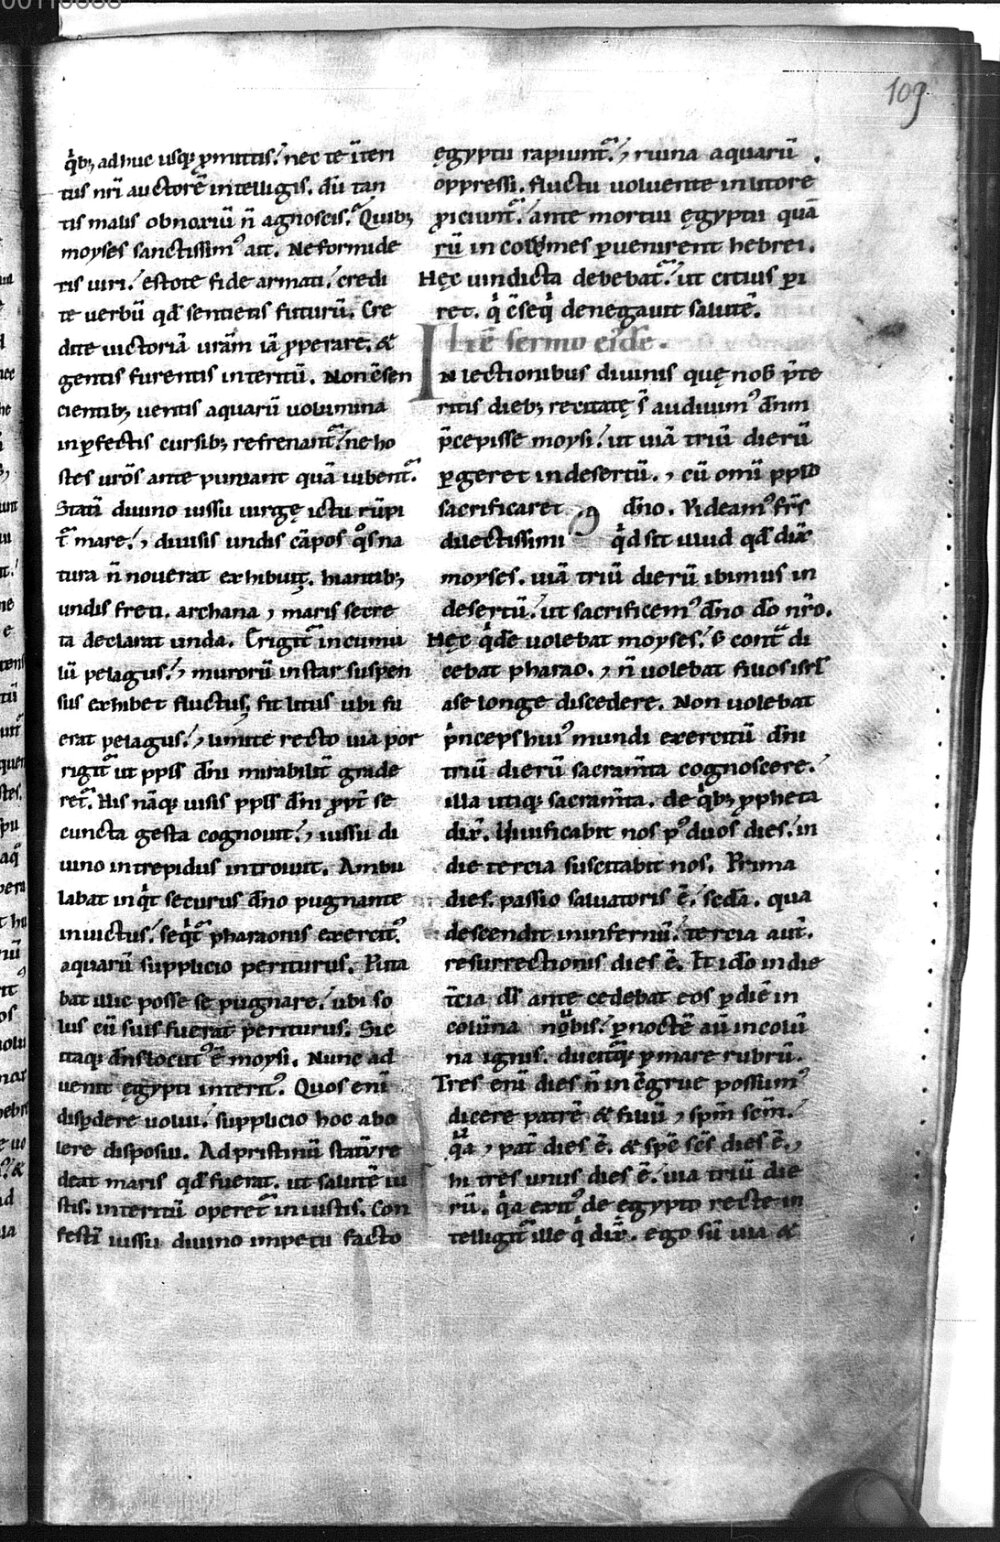 109
q̇bꝫ adhuc usqꝫ ꝓmittis.ᷣ nec te ītẽri
tus nr̄i auctorē intelligis. dū tan
tis malis obnoxiū n̄ agnoscis.ᷣ Quibꝫ
moyses sanctissim᾽ ait. Ne formide
tis uiri.ᷣ estote fide armati.ᷣ credi
te uerbū qđ sentiens futurū. Cre
dite uictoriā urām iā ꝓperare. &
gentis furentis interitū. Non c̄sen
cientibꝫ uentis aquarū uolumina
inꝑfectis cursibꝫ refrenant᷑.ᷣ ne ho
stes urōs ante puniant quā iubent᷑.
Statī diuino iussu uirgę ictu rūpi
t᷑ mare.ᷣ ⁊ diuisis undis cāpos qͦs na
tura n̄ nouerat exhibuit. hiantibꝫ
undis freti. archana ⁊ maris secre
ta declarat unda. Erigit᷑ in cumu
lū pelagus.ᷣ ⁊ murorū instar suspen
sus exhibet fluctus. fit litus ubi fu
erat pelagus.ᷣ ⁊ limite recto uia por
rigit᷑ ut ppls dn̄i mirabilit̄ grade
ret᷑. His nāqꝫ uisis ppls dn̄i ꝓpt̄ se
cuncta gesta cognouit.ᷣ ⁊ iussu di
uino intrepidus introiuit. Ambu
labat inqͥt securus dn̄o pugnante
inuictus.ᷣ seqͥt᷑ pharaonis exercit᾽
aquarū supplicio periturus. Puta
bat illic posse se pugnare.ᷣ ubi so
lus cū suis fuerat periturus. Sic
itaqꝫ dn̄s locut᾽ ē moysi. Nunc ad
uenit ęgypti interit᾽. Quos enī
disꝑdere uolui.ᷣ supplicio hoc abo
lere disposui. Ad pristinū statū re
deat maris qđ fuerat. ut salutē iu
stis. interitū operet᷑ iniustis. Con
festī iussu diuino impetu facto
ęgyptii rapiunt᷑.ᷣ ⁊ ruina aquarū
oppressi. fluctu uoluente in litore
ꝓiciunt᷑.ᷣ ante mortui ęgyptii quā
rū in colomes ꝑuenirent hebrei.
Hęc uindicta debebat᷑.ᷣ ut citius ꝑi
ret. qͥ c̄seqͥ denegauit salutē.
Itē sermo eiᵈe.
In lectionibus diuinis que nob̄ p̄te
ritis diebꝫ recitatę s̄ audiuim᾽ dn̄m
p̄cepisse moysi.ᷣ ut uiā triū dierū
ꝑgeret in desertū. ⁊ cū omī pplo
sacrificaret dn̄o. Videam᾽ fr̄s
dilectissimi qͥd sit illud qđ dix̄
moyses. uiā triū dierū ibimus in
desertū.ᷣ ut sacrificem᾽ dn̄o dō nr̄o.
Hęc qͥdē uolebat moyses.ᷣ s̄ cont᷑ di
cebat pharao. ⁊ n̄ uolebat filios isrl
a se longe discedere. Non uolebat
pͥnceps hui᾽ mundi exercitū dn̄i
triū dierū sacram̄ta cognoscere.ᷣ
illa utiqꝫ sacram̄ta. de qͥbꝫ ꝓpheta
dix̄. Uiuificabit nos p᾽ duos dies.ᷣ in
die tercia suscitabit nos. Prima
dies. passio saluatoris ē. sedā. qua
descendit in infernū.ᷣ tercia aut̄.
resurrectionis dies ē. Et ideo in die
t̄cia ds̄ ante cedebat eos ꝑ diē in
colūna nubis.ᷣ ꝑ noctē aū in colū
na ignis. ducitqꝫ ꝑ mare rubrū.
Tres enī dies n̄ incōgrue possum᾽
dicere patrē & filiū ⁊ sp̄m sc̄m.ᷣ
qͥa ⁊ pat̄ dies ē. & spc̄ sc̄s dies ē. ⁊
hi tres unus dies ē.ᷣ uia triū die
rū. qͥa exit᾽ de egypto recte in
telligit᷑ ille qͥ dix̄. ego sū uia &